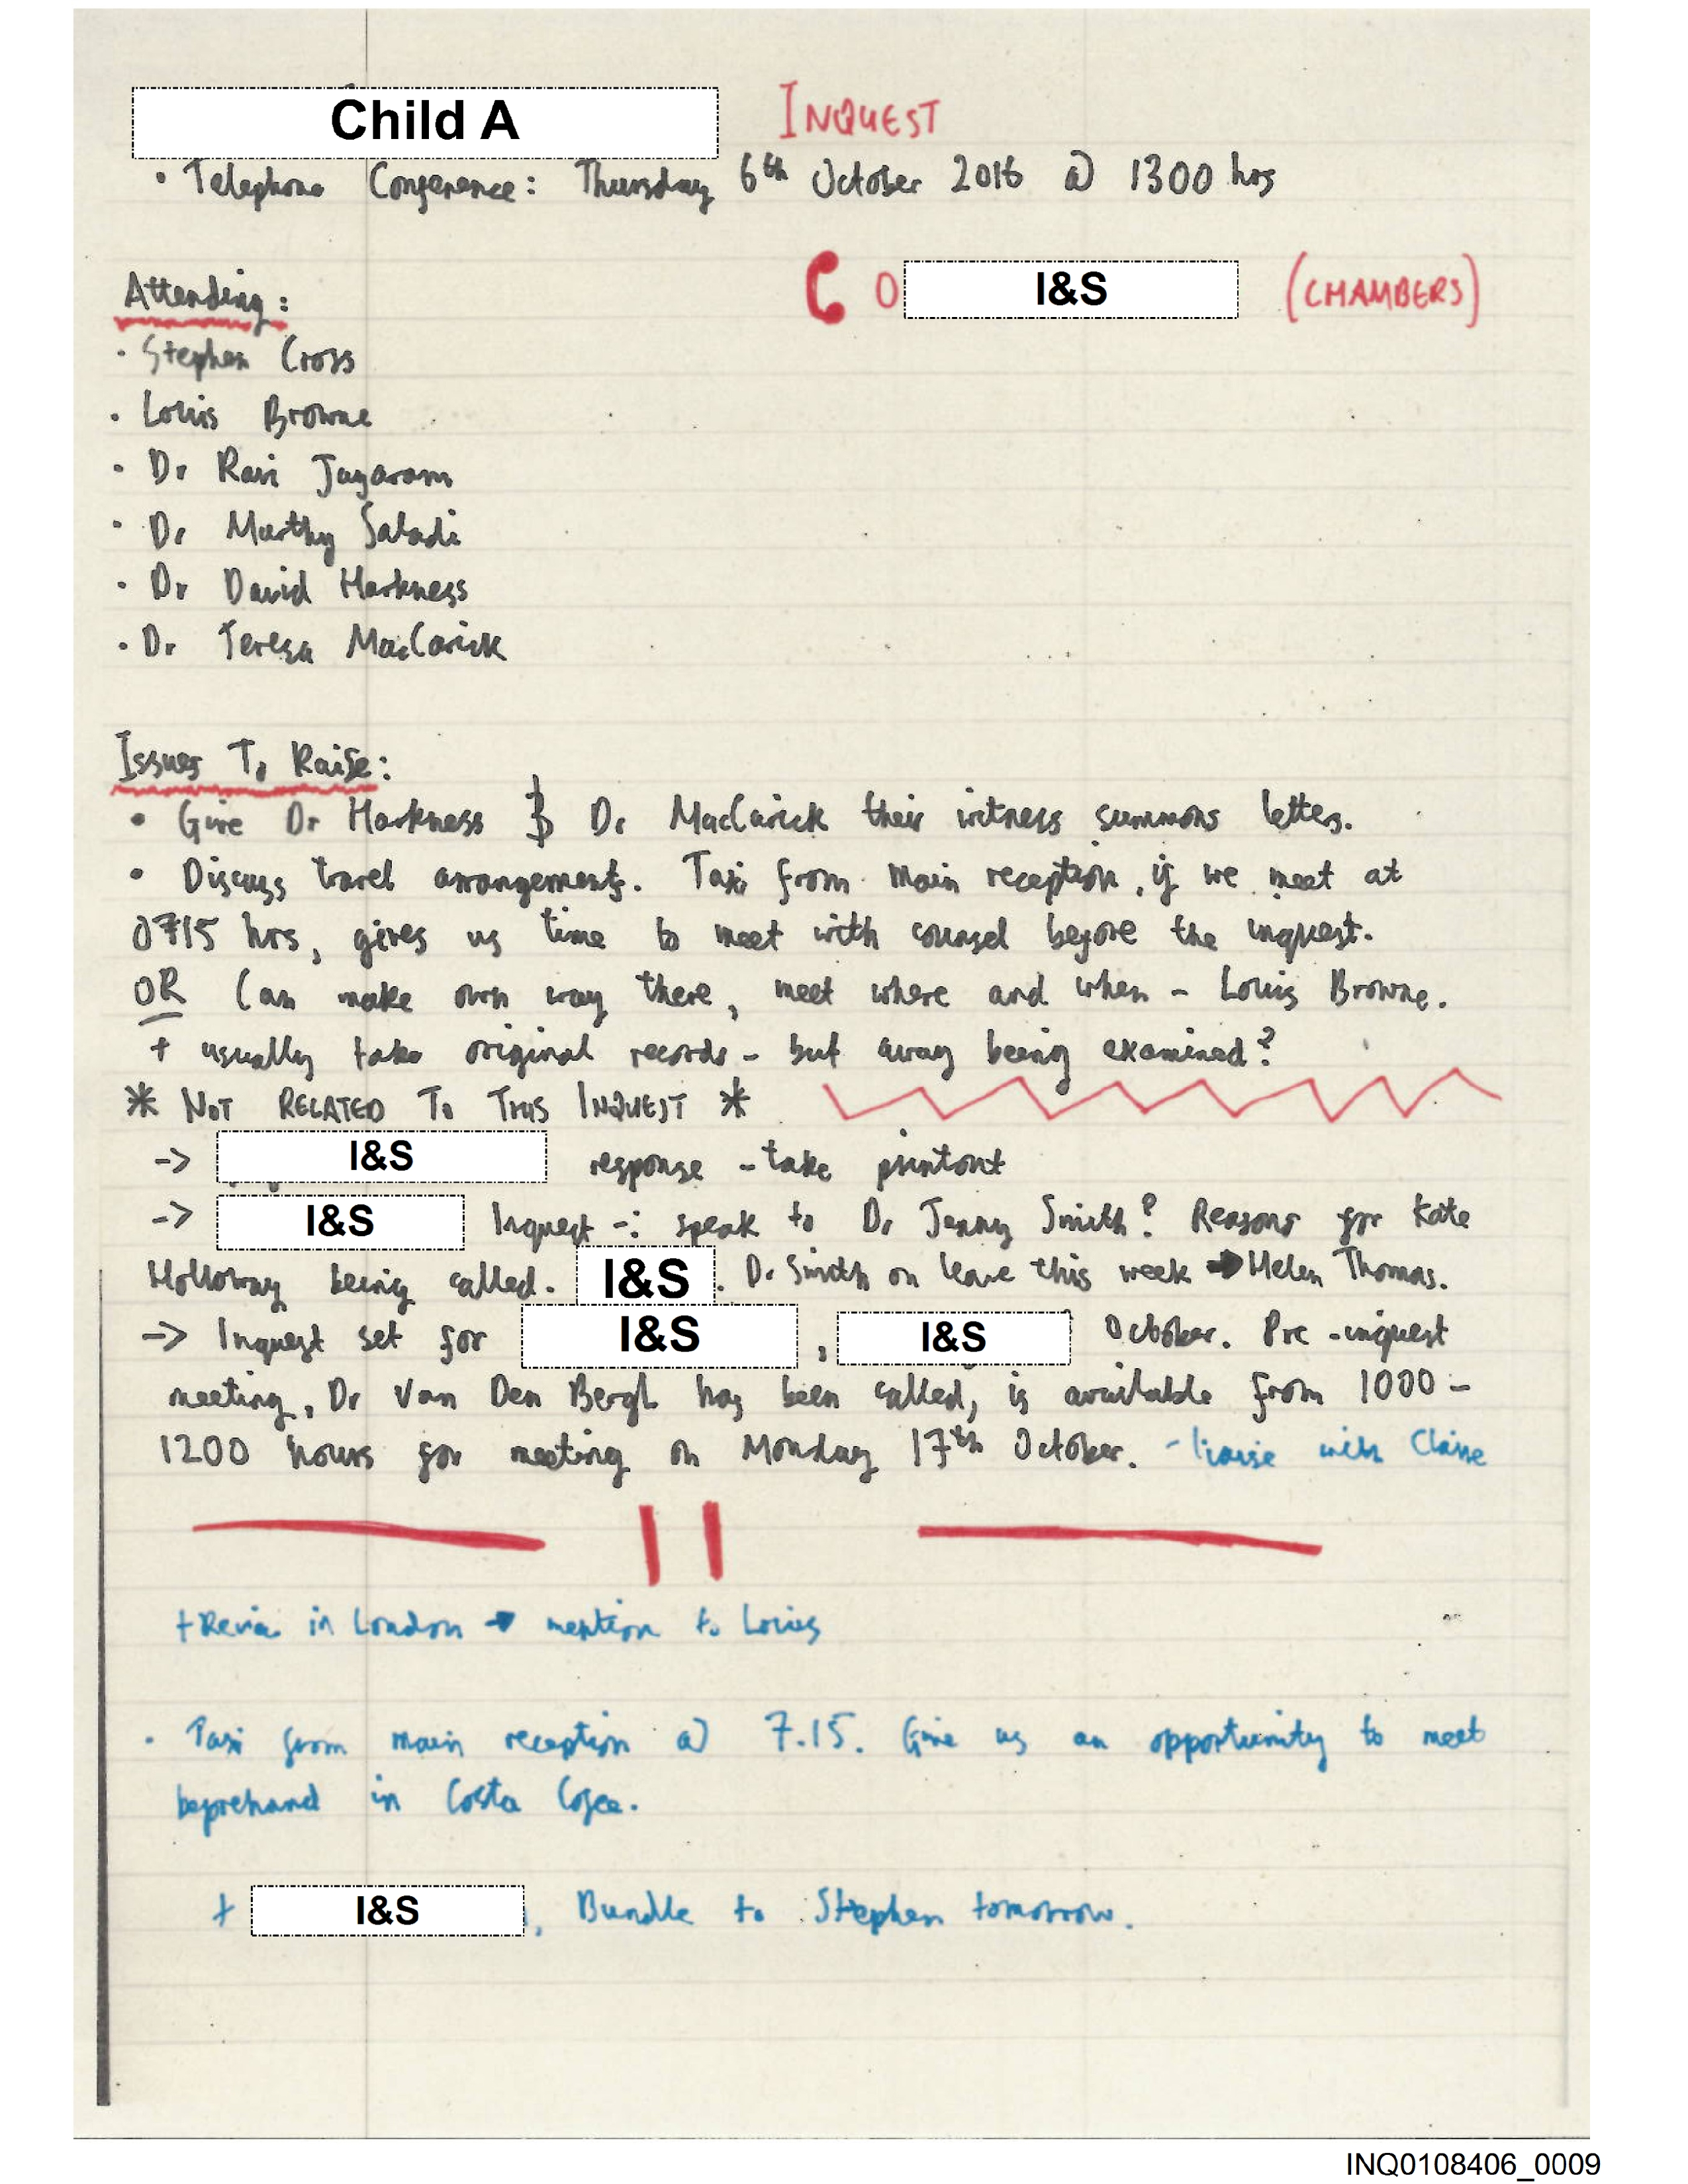 Child A INQUEST
• Telephone Conference: Thursday 6th October 2016 @ 1300 hrs
Attending: 0 I&S (CHAMBERS)
• Stephen Cross
• Louis Browne
• Dr Ravi Jayaram
• Dr Murthy Saladi
• Dr David Harkness
• Dr Teresa MacCarick
Issues To Raise:
• Give Dr Harkness & Dr MacCarick their witness summons letters.
• Discuss travel arrangements. Taxi from main reception, if we meet at
0715 hrs, gives us time to meet with counsel before the inquest.
OR Can make own way there, meet where and when - Louis Browne.
+ usually take original records - but away being examined?
* NOT RELATED TO THIS INQUEST *
-> I&S response - take printout
-> I&S Inquest -: speak to Dr Jenny Smith? Reasons for Kate
Holloway being called. I&S. Dr Smith on leave this week → Helen Thomas.
-> Inquest set for I&S, I&S October. Pre-inquest
meeting, Dr Van Den Bergh has been called, is available from 1000 -
1200 hours for meeting on Monday 17th October. - liaise with Claire
+ in London → mention to Louis
• Taxi from main reception @ 7.15. Give us an opportunity to meet
beforehand in Costa Coffee.
+ I&S, Bundle to Stephen tomorrow.
INQ0108406_0009